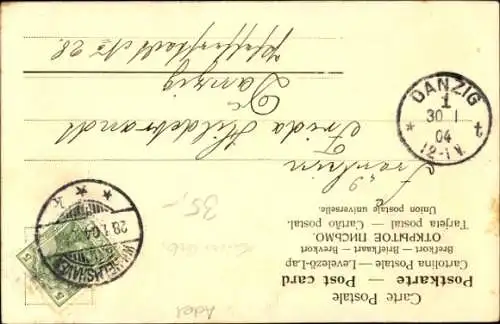 Carte Postale
Postkarte — Post card
Cartolina Postale — Levelező-Lap
Brefkort — Briefkaart — Brevkort
ОТКРЫТОЕ ПИСЬМО.
Tarjeta postal — Cartão postal.
Union postale universelle.
Fräulein
Frida Hildebrandt
Danzig
Pfefferstadt No 28.
DANZIG
1
30 1
04
12-1 N.
* t
WILHELMSHAVEN
29.1.04
* k *
5
5
35,-
Adel